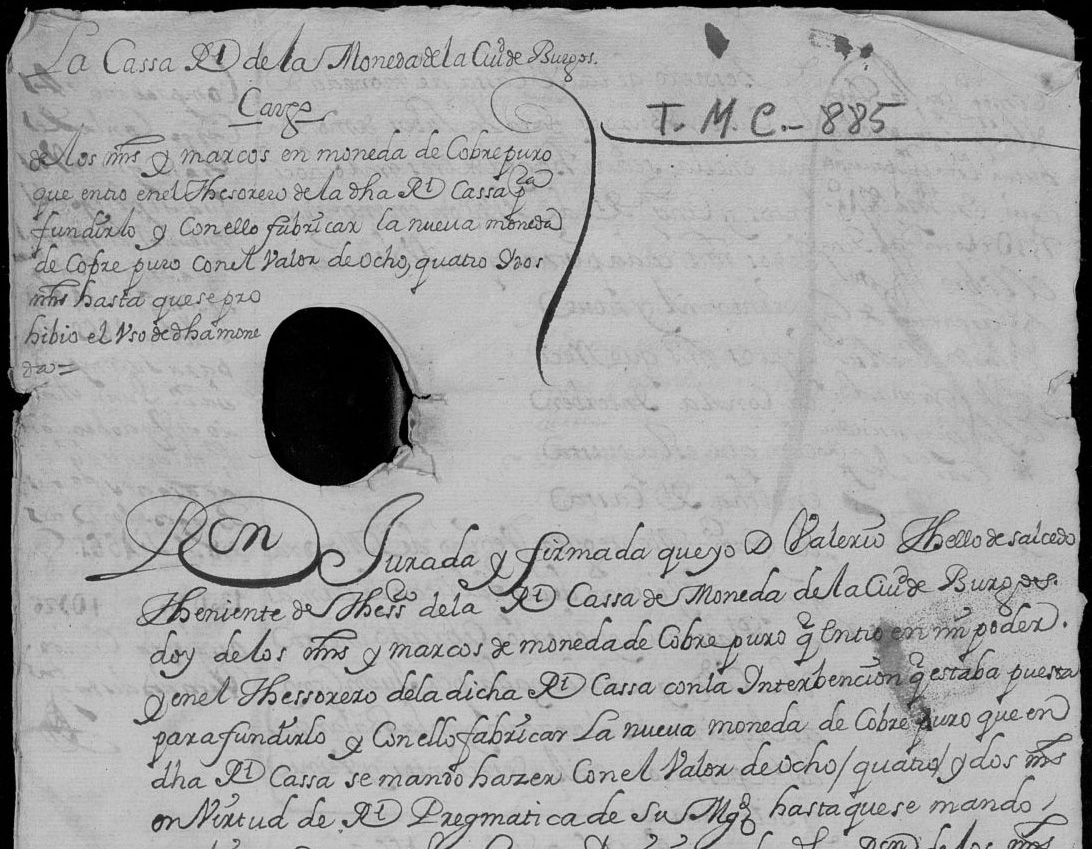 La Cassa Rl de la Moneda de la Ciud de Burgos.
Cargo
T. M. C. - 885
de los mrs y marcos en moneda de Cobre puro
que entro en el Thesorero de la dha Rl Cassa pa
fundirlo y Con ello fabricar la nueva moneda
de Cobre puro con el Valor de ocho, quatro y dos
mrs hasta que se pro
hibio el Vso de dha mone
da =
Ron Jurada y firmada que yo D Valerio Thello de salcedo
Theniente de Thessro de la Rl Cassa de Moneda de la Ciud de Burgos.
doy de los mrs y marcos de moneda de Cobre puro q Entro en mi poder.
y en el Thessorero de la dicha Rl Cassa con la Interbencion q estaba puesta
para fundirlo y Con ello fabricar La nueva moneda de Cobre puro que en
dha Rl Cassa se mando hazer Con el Valor de ocho / quatro / y dos mrs
en Virtud de Rl Pregmatica de Su Mgd hasta que se mando